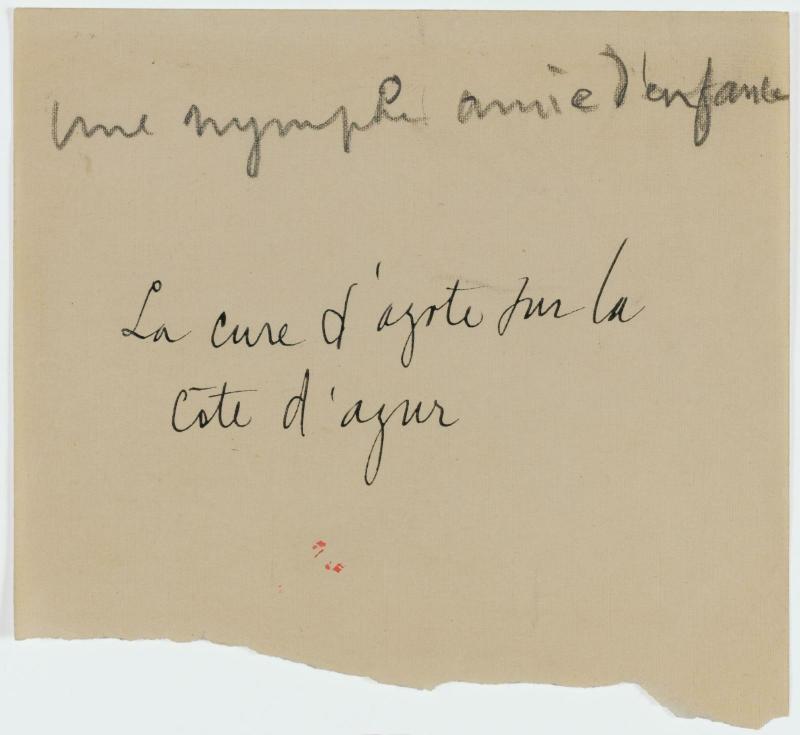 une nymphe amie d'enfance
La cure d'azote sur la
côte d'azur